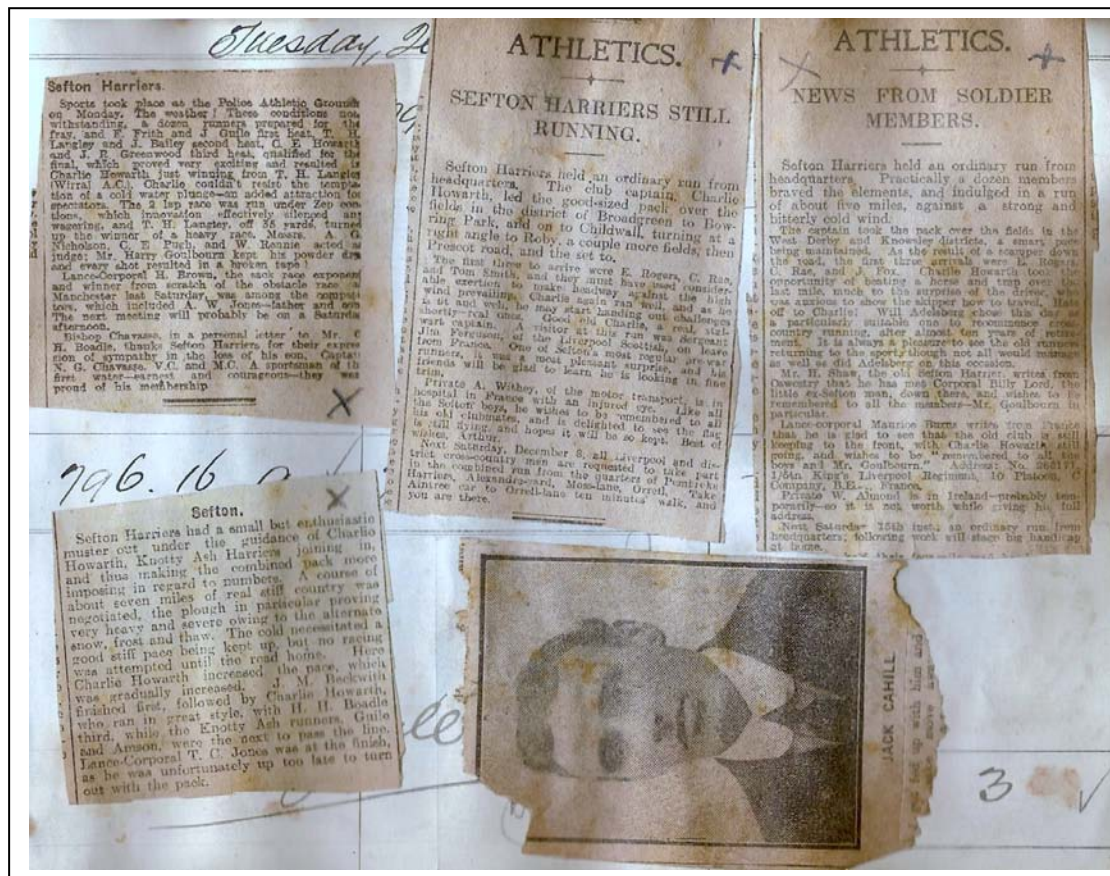 Tuesday,
Sefton Harriers.
Sports took place at the Police Athletic Grounds
on Monday. The weather! These conditions not
withstanding, a dozen runners prepared for the
fray, and F. Frith and J. Guile first heat, T. H.
Langley and J. Bailey second heat, C. E. Howarth
and J. P. Greenwood third heat, qualified for the
final, which proved very exciting and resulted in
Charlie Howarth just winning from T. H. Langley
(Wirral A.C.). Charlie couldn't resist the tempta-
tion of a cold water plunge—an added attraction for
spectators. The 2 lap race was run under Zep con-
tions, which innovation effectively silenced any
wagering, and T. H. Langley, off 35 yards, turned
up the winner of a heavy race. Messrs. G.
Nicholson, C. E. Pugh, and W. Rennie acted as
judge; Mr. Harry Goulbourn kept his powder dry
and every shot resulted in a broken tape!
Lance-Corporal H. Brown, the sack race exponent
and winner from scratch of the obstacle race at
Manchester last Saturday, was among the compet-
tors, which included W. Jones—father and son.
The next meeting will probably be on a Saturday
afternoon.
Bishop Chavasse, in a personal letter to Mr. C
H. Boadle, thanks Sefton Harriers for their expres-
sion of sympathy in the loss of his son, Captain
N. G. Chavasse, V.C. and M.C. A sportsman of the
first water—earnest and courageous—they was
proud of his membership
ATHLETICS.
SEFTON HARRIERS STILL
RUNNING.
Sefton Harriers held an ordinary run from
headquarters. The club captain, Charlie
Howarth, led the good-sized pack over the
fields in the district of Broadgreen to Bow-
ring Park, and on to Childwall, turning at a
right angle to Roby, a couple more fields, then
Prescot road, and the set to.
The first three to arrive were E. Rogers, C. Rae,
and Tom Smith, and they must have used consider-
able exertion to make headway against the high
wind prevailing. Charlie again ran well, and as he
is fit and well, he may start handing out challenges
shortly—real ones. Good old Charlie, a real, stal-
wart captain. A visitor at the run was Sergeant
Jim Ferguson, of the Liverpool Scottish, on leave
from France. One of Sefton's most regular pre-war
runners, it was a most pleasant surprise, and his
friends will be glad to learn he is looking in fine
trim.
Private A. Withey, of the motor transport, is in
hospital in France with an injured eye. Like all
the Sefton boys, he wishes to be remembered to all
his old clubmates, and is delighted to see the flag
is still flying, and hopes it will be so kept. Best of
wishes, Arthur.
Next Saturday, December 8, all Liverpool and dis-
trict cross-country men are requested to take part
in the combined run from the quarters of Pembroke
Harriers, Alexandra-yard, Moss-lane, Orrell. Take
Aintree car to Orrell-lane ten minutes' walk, and
you are there.
ATHLETICS.
NEWS FROM SOLDIER
MEMBERS.
Sefton Harriers held an ordinary run from
headquarters. Practically a dozen members
braved the elements, and indulged in a run
of about five miles, against a strong and
bitterly cold wind.
The captain took the pack over the fields in the
West Derby and Knowsley districts, a smart pace
being maintained. As the result of a scamper down
the road, the first three arrivals were E. Rogers,
C. Rae, and J. Fox. Charlie Howarth took the
opportunity of beating a horse and trap over the
mile, much to the surprise of the driver, who
was anxious to show the skipper how to travel. Hats
off to Charlie! Will Adelsberg chose this day as
a particularly suitable one to recommence cross-
country running after almost ten years of retire-
ment. It is always a pleasure to see the old runners
returning to the sport, though not all would manage
as well as did Adelsberg on this occasion.
Mr. H. Shaw, the old Sefton Harrier, writes from
Oswestry that he has met Corporal Billy Lord, the
little ex-Sefton man, down there, and wishes to be
remembered to all the members—Mr. Goulbourn in
particular.
Lance-corporal Maurice Burns writes from France
that he is glad to see that the old club is still
keeping to the front, with Charlie Howarth still
going, and wishes to be "remembered to all the
boys and Mr. Goulbourn." Address: No.
King's Liverpool Regiment, 10 Platoon,
Company, B.E.F., France.
Private W. Almond is in Ireland—probably tem-
porarily—so it is not worth while giving his full
address.
Next Saturday 15th inst., an ordinary run from
headquarters; following week will stage big handicap
at home.
796.16
Sefton.
Sefton Harriers had a small but enthusiastic
muster out under the guidance of Charlie
Howarth, Knotty Ash Harriers joining in,
and thus making the combined pack more
imposing in regard to numbers. A course of
about seven miles of real stiff country was
negotiated, the plough in particular proving
very heavy and severe owing to the alternate
snow, frost and thaw. The cold necessitated a
good stiff pace being kept up, but no racing
was attempted until the road home. Here
Charlie Howarth increased the pace, which
was gradually increased. J. M. Beckwith
finished first, followed by Charlie Howarth,
who ran in great style, with H. H. Boadle
third, while the Knotty Ash runners, Guile
and Amson, were the next to pass the line.
Lance-Corporal T. C. Jones was at the finish,
as he was unfortunately up too late to turn
out with the pack.
JACK CAHILL
fed up with him and
move
3